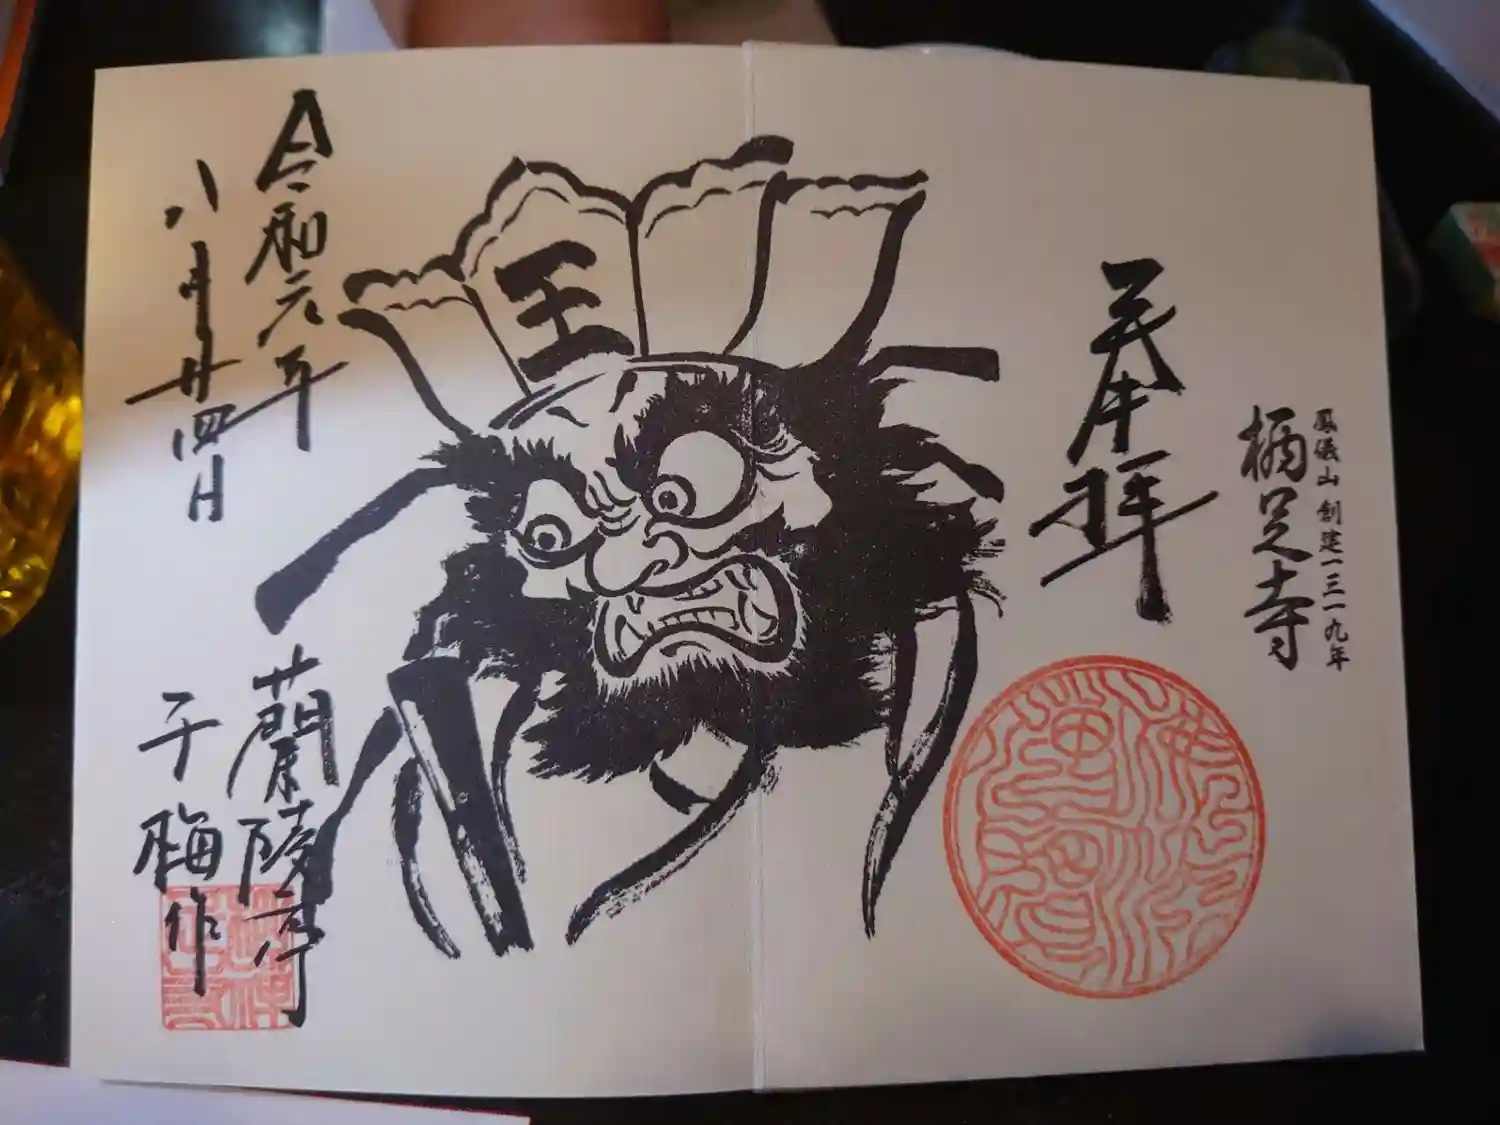 鳳儀山 創建一三一九年
栖足寺
奉拝
王
令和元年
八月廿四日
蘭陵亭
子梅作